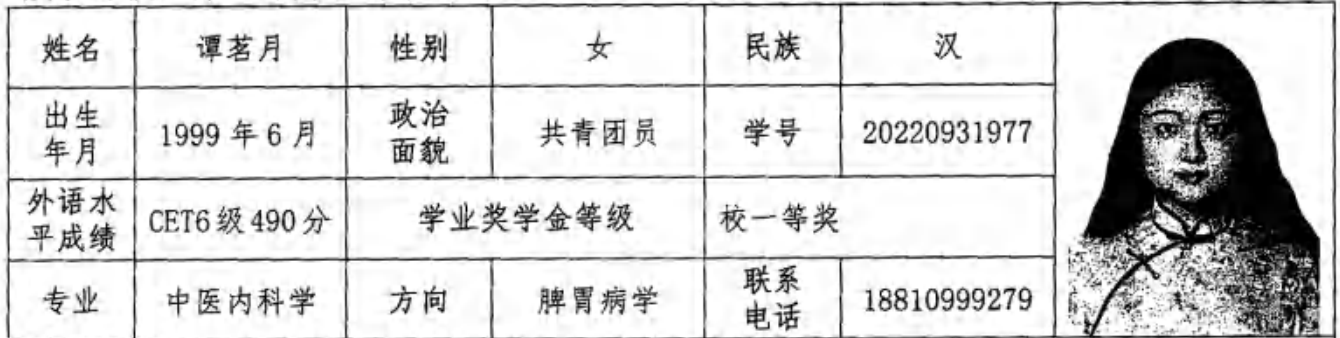 姓名 谭茗月 性别 女 民族 汉
出生年月 1999年6月 政治面貌 共青团员 学号 20220931977
外语水平成绩 CET6级490分 学业奖学金等级 校一等奖
专业 中医内科学 方向 脾胃病学 联系电话 18810999279